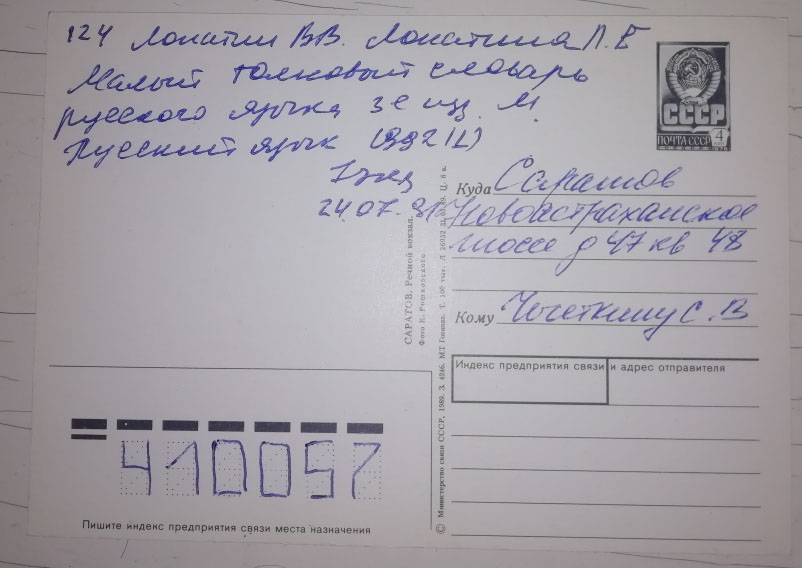 124 Лопатин В.В. Лопатина Л.Е
Малый толковый словарь
русского языка 3е изд. М.
Русский язык (1992 )
1 экз
24.07.91
СССР
ПОЧТА СССР 4
Куда Саратов
Новоастраханское
шоссе д 47 кв 48
Кому С.В
Индекс предприятия связи и адрес отправителя
САРАТОВ. Речной вокзал.
Фото Е. Рошковского
© Министерство связи СССР, 1989. З. 4246. МТ Гознака. Т. 100 тыс. Ц. 6 к.
410057
Пишите индекс предприятия связи места назначения